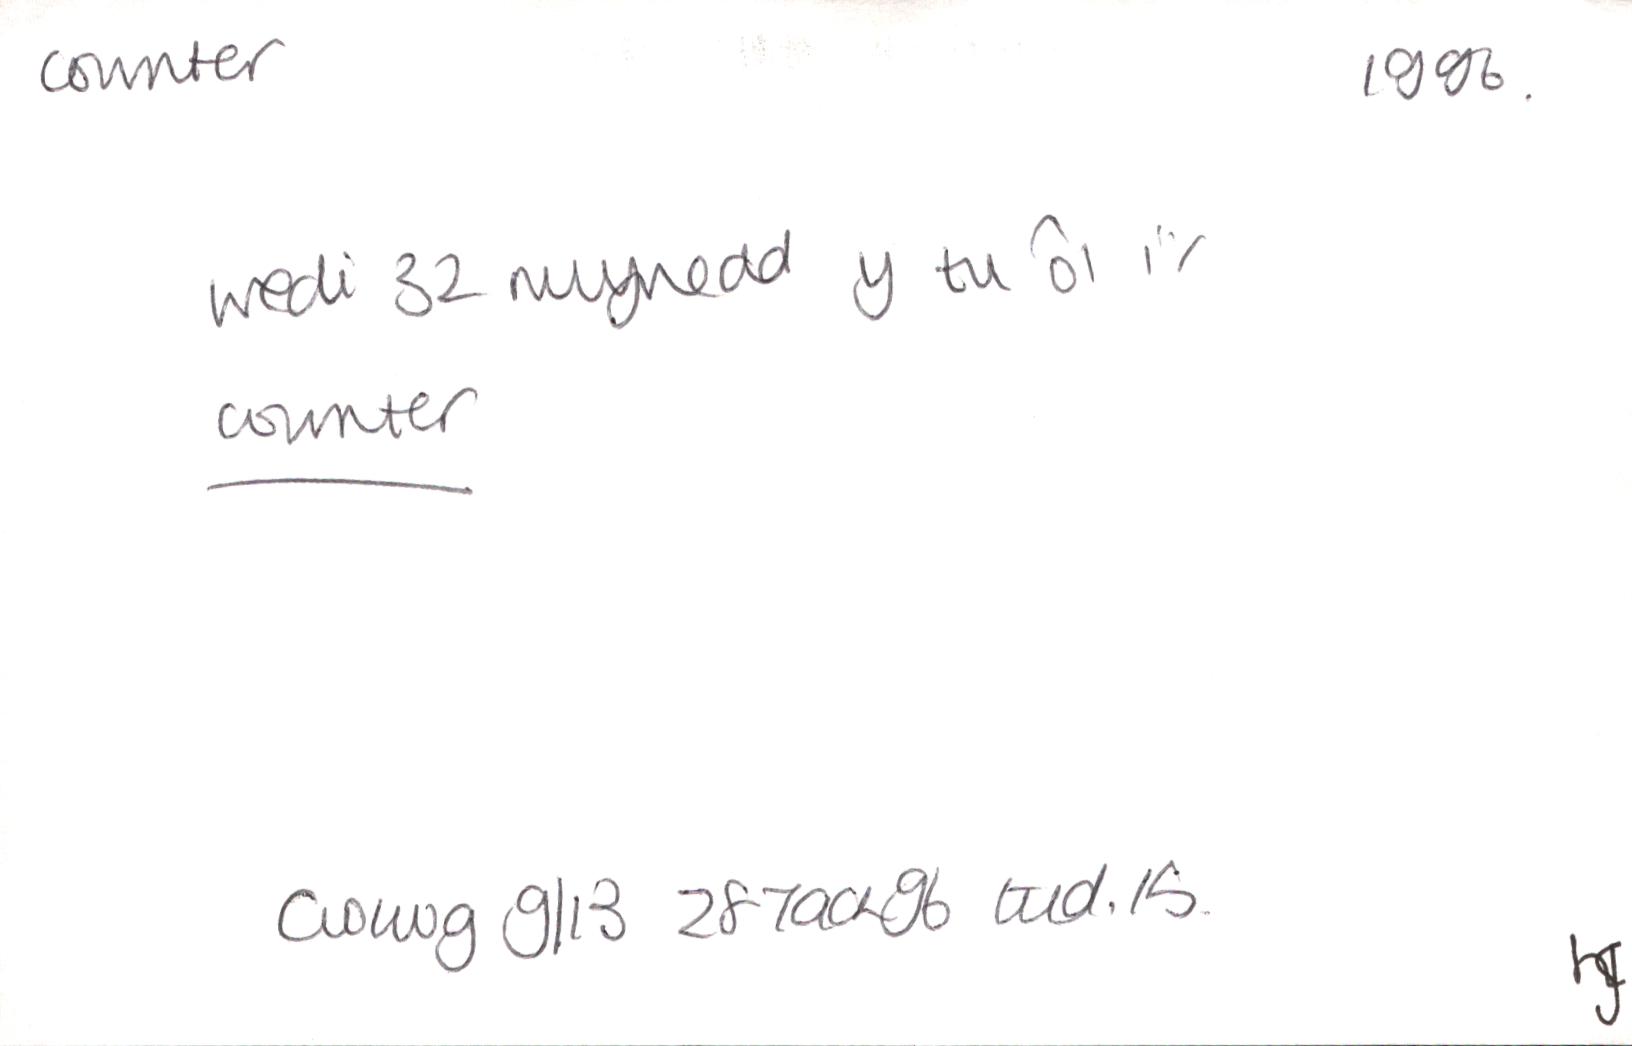 counter 1996.
wedi 32 mlynedd y tu ôl i'r
counter
Golwg 9/13 28 Tach 96 tud. 15.